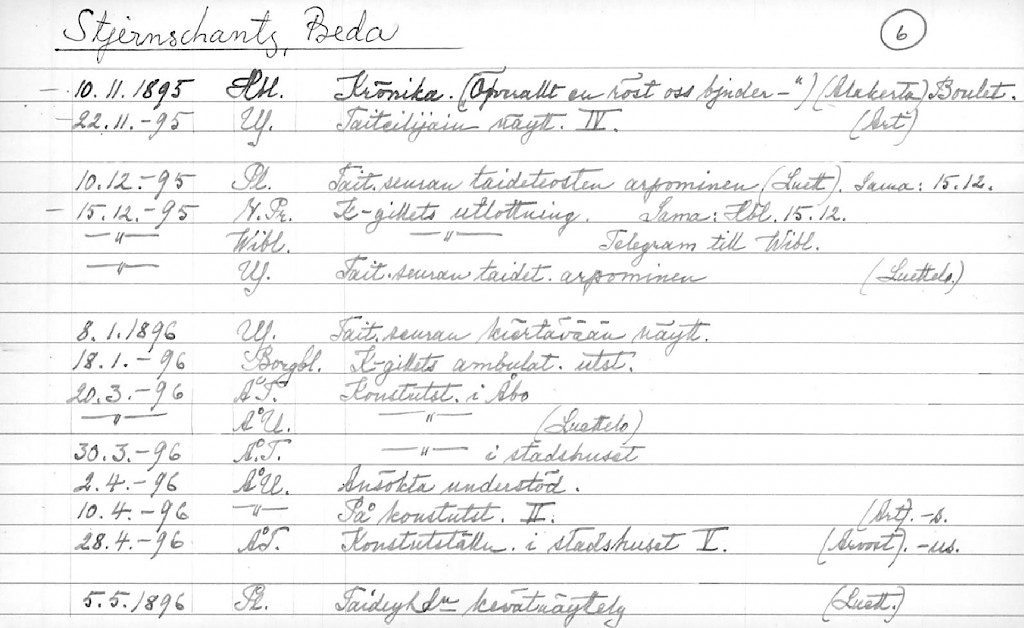 Stjernschantz, Beda 6
- 10.11.1895 Hbl. Krönika. (Överallt en röst oss bjuder -") (Alakerta) Boulet.
- 22.11.-95 Uj. Taiteilijain näytt. IV. (Art)
10.12.-95 Pl. Tait. seuran taideteosten arpominen (Luett). Sama: 15.12.
- 15.12.-95 N.Pr. K-gillets utlottning. Sama: Hbl. 15.12.
—"— Wibl. —"— Telegram till Wibl.
—"— Uj. Tait. seuran taidet. arpominen (Luettelo.)
8.1.1896 Uj. Tait. seuran kiertävään näytt.
18.1.-96 Borgbl. K-gillets ambulat. utst.
20.3.-96 Å.T. Konstutst. i Åbo
—"— Å.U. —"— (Luettelo)
30.3.-96 Å.T. —"— i stadshuset
2.4.-96 Å.U. Ansökta understöd.
10.4.-96 —"— På konstutst. II. (Art). -s.
28.4.-96 Å.T. Konstutställn. i stadshuset V. (Arvost). -us.
5.5.1896 Pl. Taideyhd:n kevätnäyttely (Luett.)